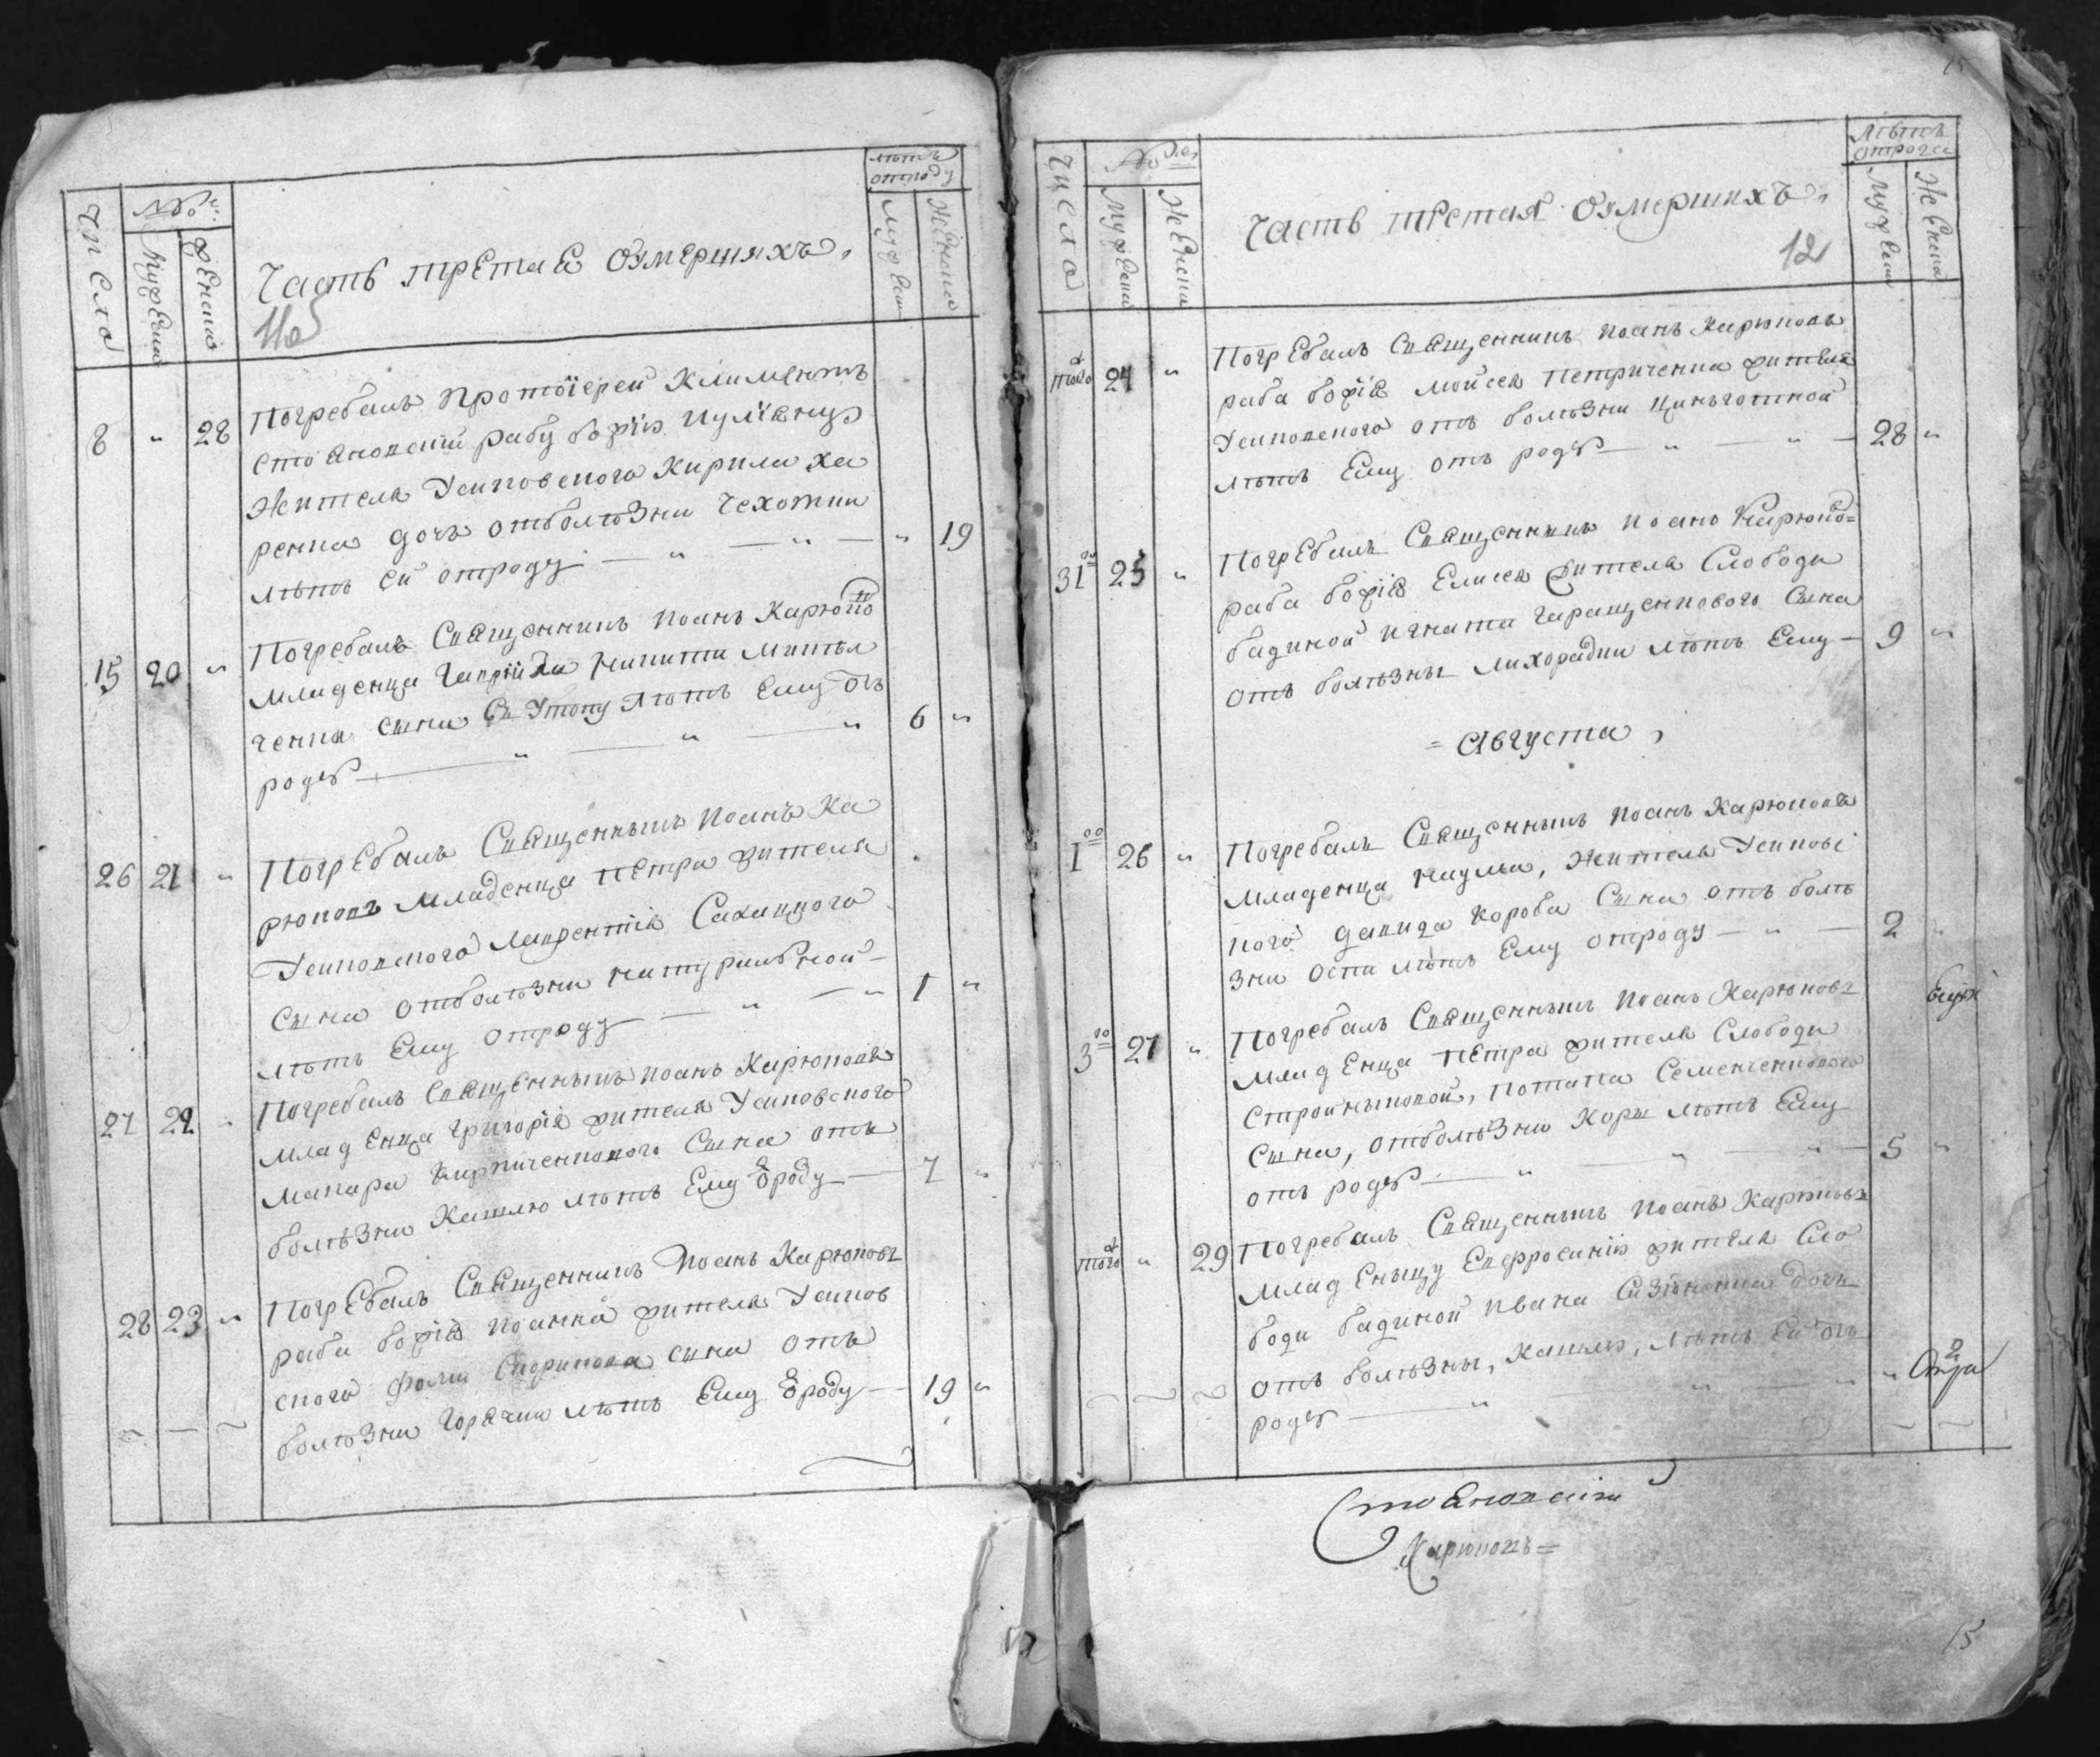 Число
№
Мужеска
Женска
Часть третая Оумершихъ,
лѣтъ
отроду
Мужеск
Женска
8 „ 28
Погребалъ протоіерей Климентъ
Стояновскій рабу божію Иуліяну
Жителя Усиповского Кирила Ха
ренка дочь отболѣзни Чехотки
лѣтъ ей отроду — „ — „ — „ 19
15 20 „
Погребалъ Священникъ Иоанъ Карюковъ
Младенца Никити
ченка сына лѣтъ Ему отъ
роду — „ — „ — „ 6 „
26 21 „
Погребалъ Священникъ Иоанъ Ка
рюковъ Младенца Петра жителя
Усиповского Лаврентія
Сына отболѣзни натуральной
лѣтъ Ему отроду — „ — „ 1 „
27 22 „
Погребалъ Священникъ Иоанъ Карюковъ
Младенца Григорія жителя Усиповского
Макара Кириченкового Сына отъ
болѣзни Кашлю лѣтъ Ему ѿроду — 7 „
28 23 „
Погребалъ Священникъ Иоанъ Карюковъ
раба божія Иоанна жителя Усипов
ского Фоми сына отъ
болѣзни Горячки лѣтъ Ему ѿроду — 19 „
Число
№
Мужеска
Женска
Часть третая Оумершихъ,
12
лѣтъ
отрожде
Мужеск
Женска
того 24 „
Погребалъ Священникъ Иоанъ Карюковъ
раба божія Мойсея Петриченка жителя
Усиповского отъ болѣзни цинготной
лѣтъ Ему отъ роду — „ — „ — 28 „
31го 25 „
Погребалъ Священникъ Иоанъ Карюко=
раба божія Елисея жителя Слободи
бадиной Игната Гаращенкового Сына
отъ болѣзны лихорадки лѣтъ Ему — 9 „
= Августа,
1го 26 „
Погребалъ Священникъ Иоанъ Карюковъ
Младенца Наума, Жителя Усипові
кого Давида Короба Сына отъ болѣ
зни Оспи лѣтъ Ему отроду — „ — 2
3го 27 „
Погребалъ Священникъ Иоанъ Карюковъ
Младенца Петра жителя Слободи
Потапа Семенченкового
Сына, отболѣзни Кори лѣтъ Ему
отъ роду — „ — „ — „ — 5 „
того „ 29
Погребалъ Священникъ Иоанъ Карюковъ
Младеницу Евфросинію жителя Сло
боди бадиной Ивана дочь
отъ болѣзны, Кашлю, лѣтъ Ей отъ
роду — „ — „ — „ 2
Стояновскій
Карюковъ=
15